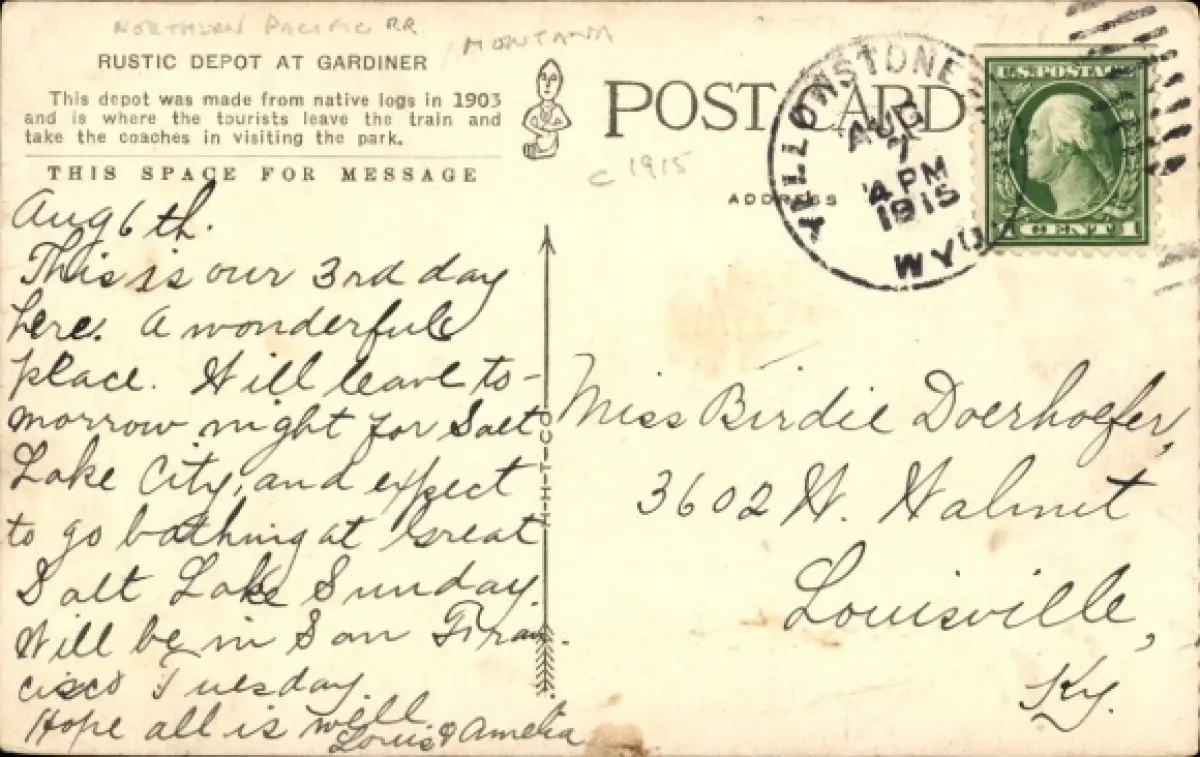 NORTHERN PACIFIC RR
MONTANA
RUSTIC DEPOT AT GARDINER
This depot was made from native logs in 1903
and is where the tourists leave the train and
take the coaches in visiting the park.
THIS SPACE FOR MESSAGE
Aug 6th.
This is our 3rd day
here. A wonderful
place. Will leave to-
morrow night for Salt
Lake City, and expect
to go bathing at Great
Salt Lake Sunday.
Will be in San Fran-
cisco Tuesday.
Hope all is well
Louis & Amelia
H-H-T-CO
POST CARD
c 1915
ADDRESS
YELLOWSTONE
AUG
7
4 PM
1915
WYO.
U.S. POSTAGE
1 CENT 1
Miss Birdie Doerhoefer,
3602 W. Walnut
Louisville,
Ky.